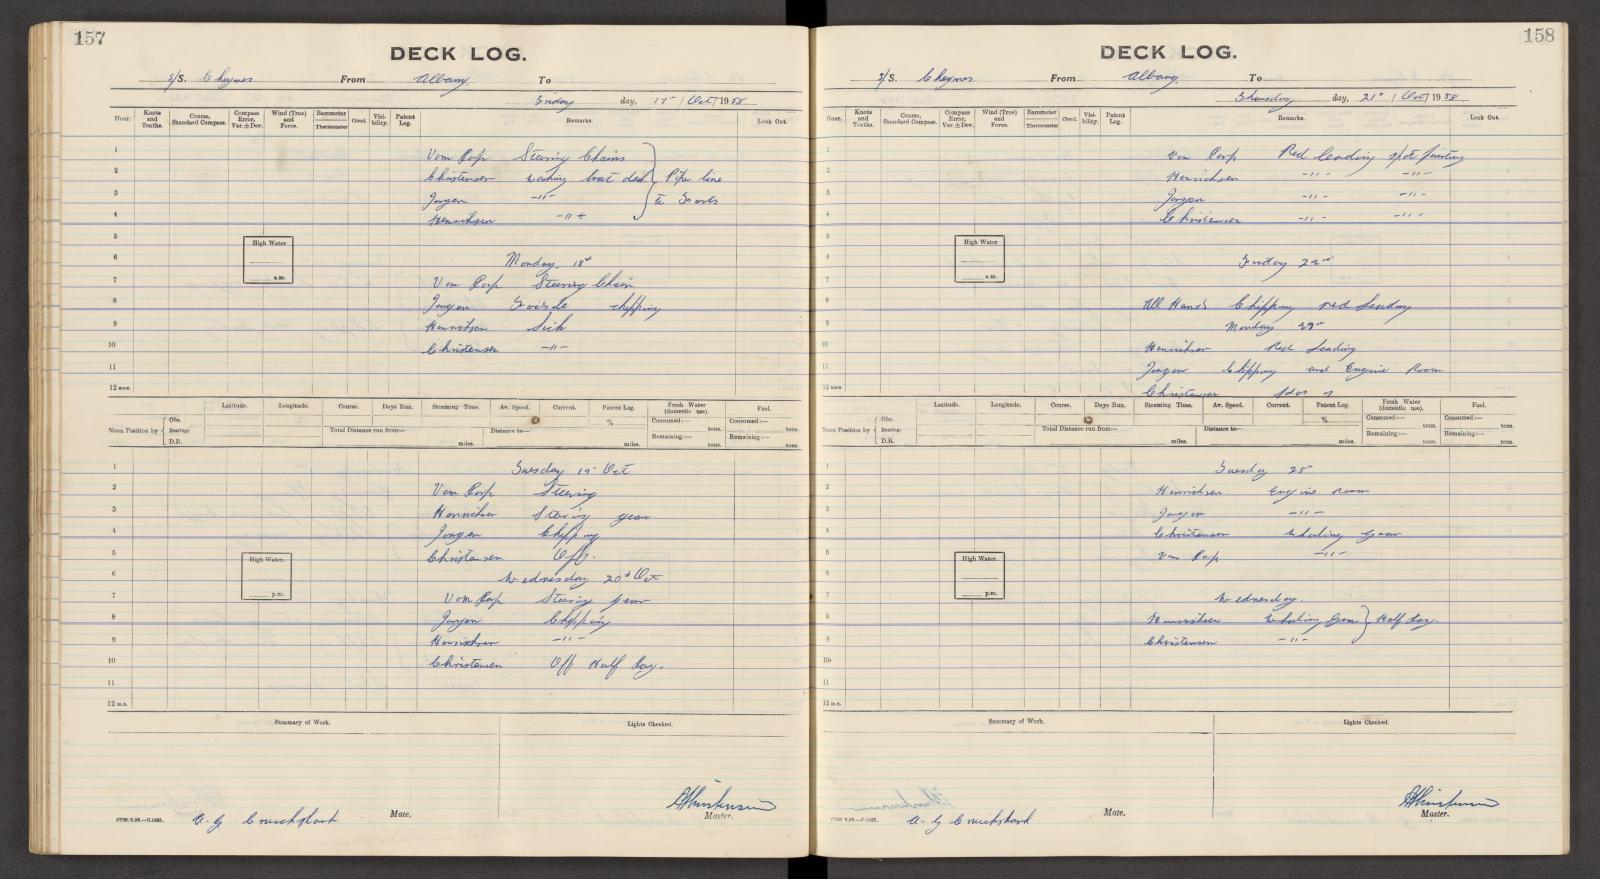 157
DECK LOG.
s/S. Cheynes From Albany To
Friday day, 15 / Oct / 1958
Hour. Knots and Tenths. Course, Standard Compass. Compass Error, Var. ± Dev. Wind (True) and Force. Barometer Thermometer Cloud. Visibility. Patent Log. Remarks. Look Out.
1 Vom Parp Steering Chains
2 Christensen washing boat deck Pipe line
3 Jorgen -"-
4 Henrichsen -"-
5
High Water a.m.
6 Monday. 18th
7 Vom Parp Steering Chain
8 Jorgen chipping
9 Henrichsen Sick
10 Christensen -"-
11
12 noon
Latitude. Longitude. Course. Days Run. Steaming Time. Av. Speed. Current. Patent Log. Fresh Water (domestic use). Fuel.
Noon Position by Obs. Bearings D.R. Total Distance run from— miles. Distance to— miles. % Consumed:— tons. Remaining:— tons. Consumed:— tons. Remaining:— tons.
1 Tuesday 19 Oct
2 Vom Parp Steering
3 Henrichsen Steering gear
4 Jorgen Chipping
5 Christensen Off.
High Water. p.m.
6 Wednesday 20th Oct
7 Vom Parp Steering gear
8 Jorgen Chipping
9 Henrichsen -"-
10 Christensen Off Half Day.
11
12 m.n.
Summary of Work. Lights Checked.
A. G. Cruickshank Mate. Master.
158
DECK LOG.
s/S. Cheynes From Albany To
Thursday day, 21st / Oct / 1958
Hour. Knots and Tenths. Course, Standard Compass. Compass Error, Var. ± Dev. Wind (True) and Force. Barometer Thermometer Cloud. Visibility. Patent Log. Remarks. Look Out.
1 Vom Parp Red leading spot painting
2 Henrichsen -"- -"-
3 Jorgen -"- -"-
4 Christensen -"- -"-
5
High Water a.m.
6 Friday 22nd
7
8 All Hands Chipping red leading
9 Monday
10 Henrichsen Red Leading
11 Jorgen Chipping and Engine Room
12 noon Christensen
Latitude. Longitude. Course. Days Run. Steaming Time. Av. Speed. Current. Patent Log. Fresh Water (domestic use). Fuel.
Noon Position by Obs. Bearings D.R. Total Distance run from— miles. Distance to— miles. % Consumed:— tons. Remaining:— tons. Consumed:— tons. Remaining:— tons.
1 Tuesday
2 Henrichsen Engine room
3 Jorgen -"-
4 Christensen Whaling gear
5 Vom Parp -"-
High Water. p.m.
6
7 Wednesday.
8 Henrichsen Whaling Gear Half Day.
9 Christensen -"-
10
11
12 m.n.
Summary of Work. Lights Checked.
A. G. Cruickshank Mate. Master.